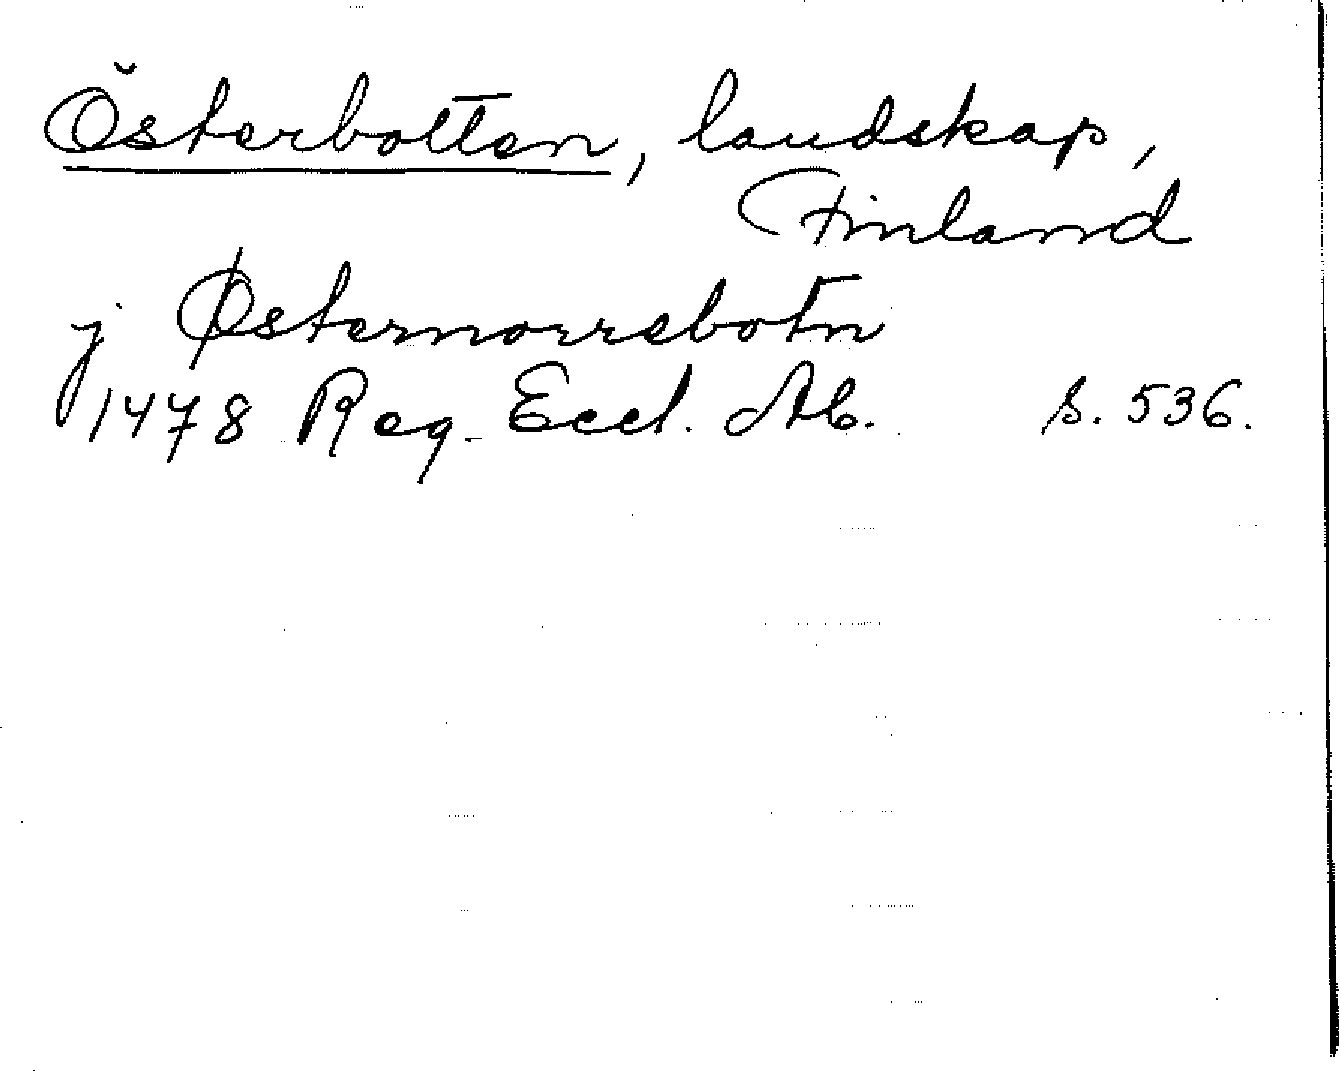 Österbotten, landskap,
Finland
j Østernorrebotn
1478 Reg. Eccl. Ab. s. 536.